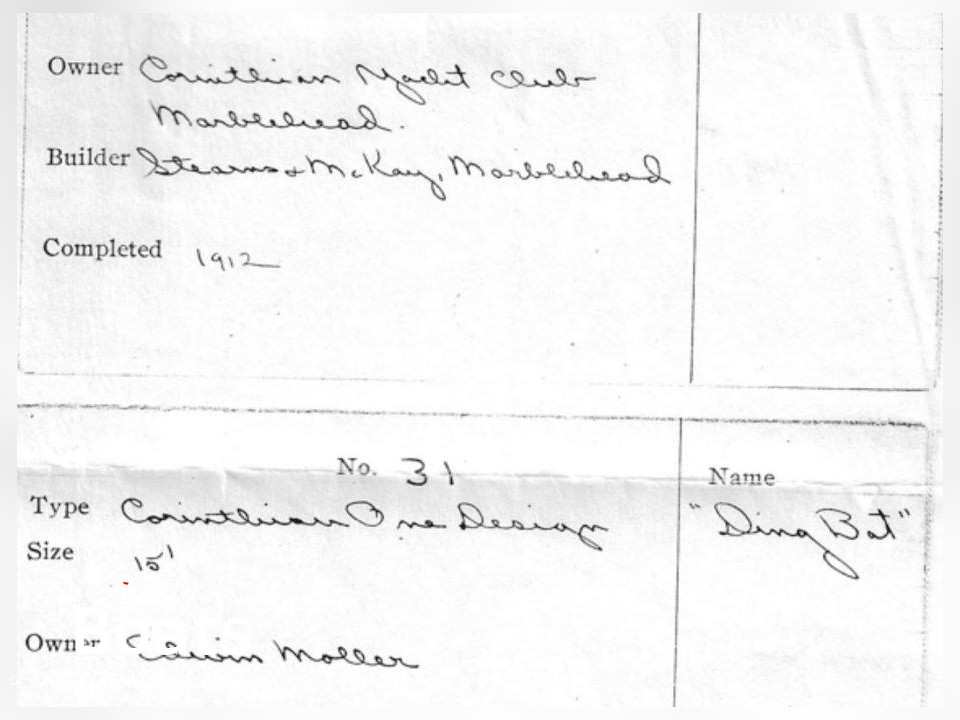 Owner Corinthian Yacht Club
Marblehead.
Builder Stearns & McKay, Marblehead
Completed 1912
No. 31
Name
Type Corinthian One Design
"Ding Bat"
Size 15'
Owner Moller